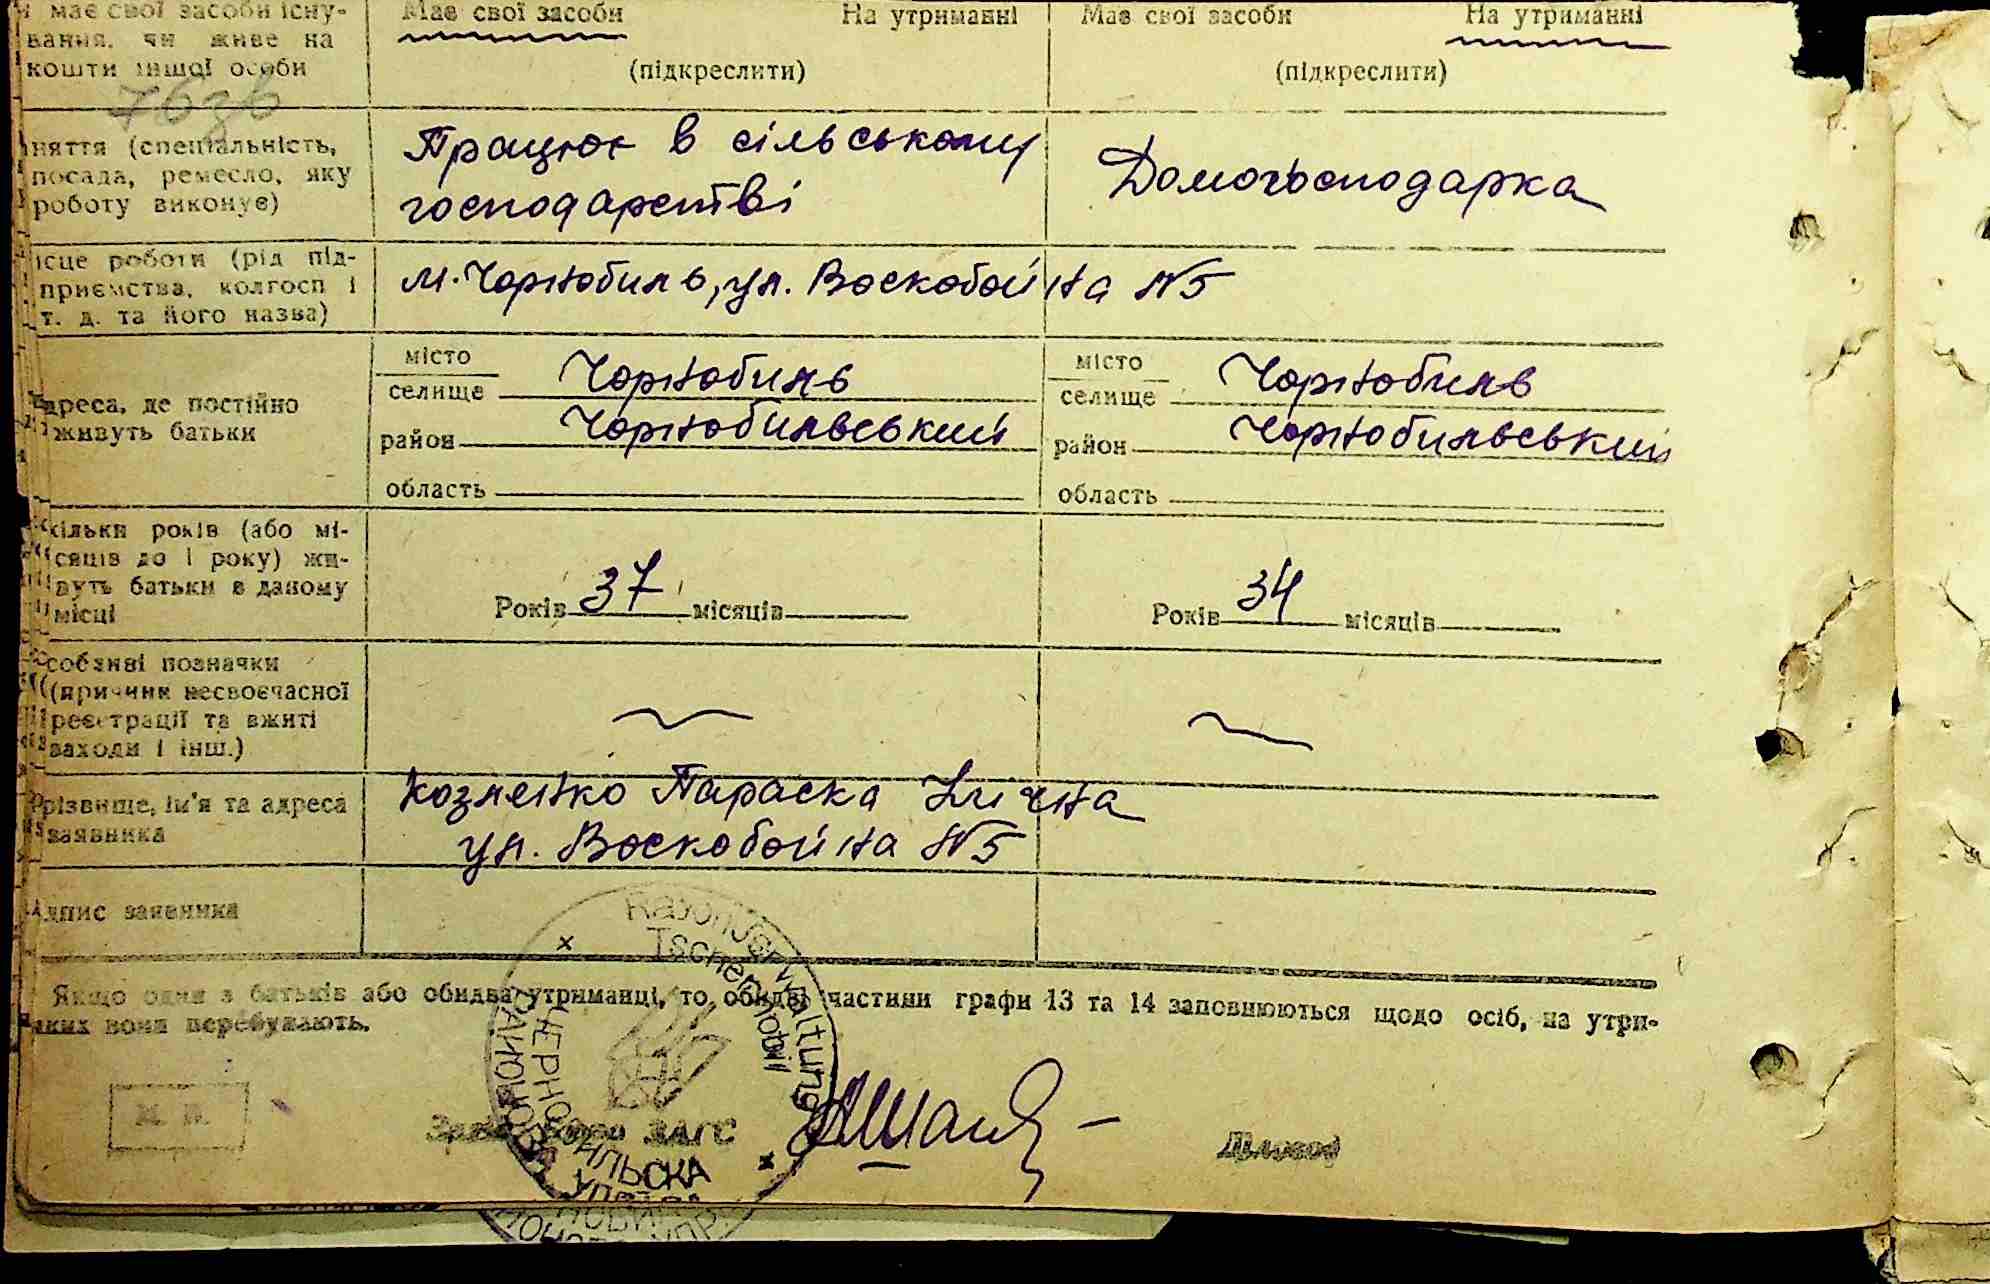 має свої засоби існу-
вання, чи живе на
кошти іншої особи
Має свої засоби На утриманні
(підкреслити)
Має свої засоби На утриманні
(підкреслити)
няття (спеціальність,
посада, ремесло, яку
роботу виконує)
Працює в сільському
господарстві
Домогосподарка
ісце роботи (рід під-
приємства, колгосп і
т. д. та його назва)
м. Чорнобиль, ул. Воскобойна №5
дреса, де постійно
живуть батьки
місто
селище Чорнобиль
район Чорнобильський
область
місто
селище Чорнобиль
район Чорнобильський
область
кільки років (або мі-
сяців до 1 року) жи-
вуть батьки в даному
місці
Років 37 місяців
Років 34 місяців
собливі позначки
(причини несвоєчасної
реєстрації та вжиті
заходи і інш.)
різвище, ім'я та адреса
заявника
Козленко Параска Іллічна
ул. Воскобойна №5
дпис заявника
Якщо один з батьків або обидва утриманці, то обидві частини графи 13 та 14 заповнюються щодо осіб, на утри-
яких вони перебувають.
Rayonverwaltung
Tschernobil
ЧЕРНОБИЛЬСКА
РАЙОНОВА
УПРАВА
М. П.
бюро ЗАГС
Діловод